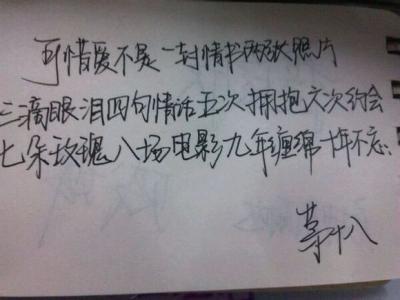 可惜爱不是一封情书两张照片
三滴眼泪四句情话五次拥抱六次约会
七朵玫瑰八场电影九年缠绵十年不忘:
茅十八